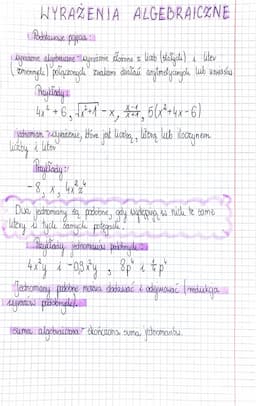 WYRAŻENIA ALGEBRAICZNE
Podstawowe pojęcia:
wyrażenie algebraiczne - wyrażenie złożone z liczb (stałych) i liter
(zmiennych) połączonych znakami działań arytmetycznych lub nawiasów
Przykłady:
4x² + 6, √x²+1 - x, x-1/x+1, 5(x²+4x-6)
jednomian - wyrażenie, które jest liczbą, literą lub iloczynem
liczby i liter
Przykłady:
-8, x, 4x²z⁴
Dwa jednomiany są podobne, gdy występują w nich te same
litery w tych samych potęgach.
Przykłady jednomianów podobnych:
4x²y i -0,9x²y, 8p⁴ i p⁴
Jednomiany podobne można dodawać i odejmować (redukcja
wyrazów podobnych).
suma algebraiczna - skończona suma jednomianów.